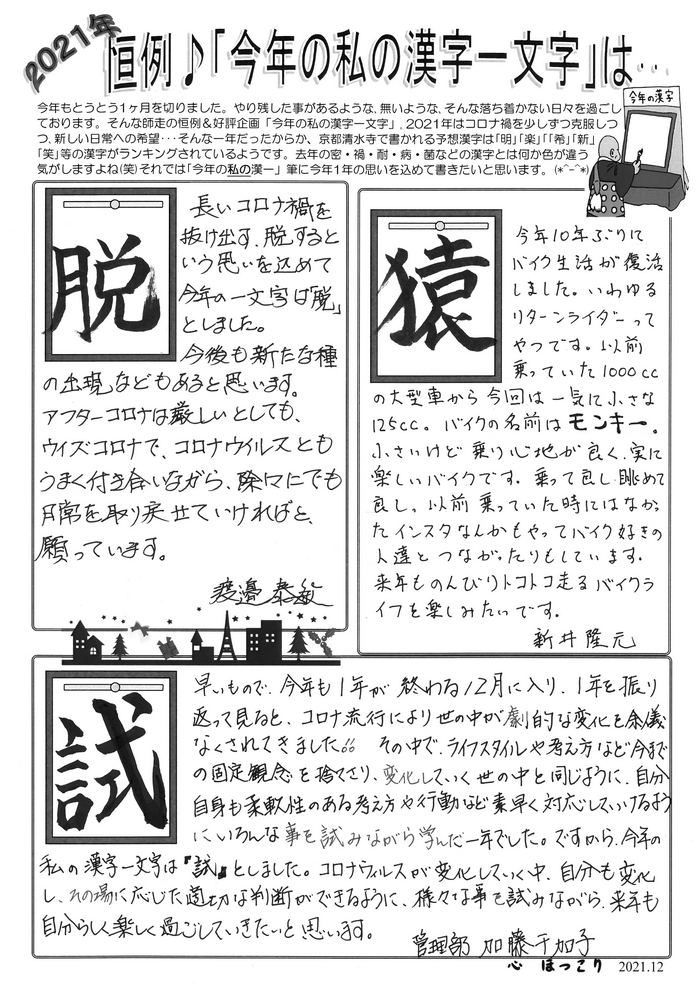 2021年
恒例♪「今年の私の漢字一文字」は‥
今年もとうとう1ヶ月を切りました。やり残した事があるような、無いような、そんな落ち着かない日々を過ごし
ております。そんな師走の恒例＆好評企画「今年の私の漢字一文字」。2021年はコロナ禍を少しずつ克服しつ
つ、新しい日常への希望…そんな一年だったからか、京都清水寺で書かれる予想漢字は「明」「楽」「「希」「新」
「笑」等の漢字がランキングされているようです。去年の密・禍・耐・病・菌などの漢字とは何か色が違う
気がしますよね(笑)それでは「今年の私の漢一」筆に今年1年の思いを込めて書きたいと思います。(*^-^*)
今年の漢字
脱
長いコロナ禍を
抜け出す、脱すると
いう思いを込めて
今年の一文字は「脱」
としました。
今後も新たな種
の出現などもあると思います。
アフターコロナは厳しいとしても、
ウイズコロナで、コロナウイルスとも
うまく付き合いながら、除々にでも
日常を取り戻せていければと、
願っています。
渡邉泰敏
猿
今年10年ぶりに
バイク生活が復活
しました。いわゆる
リターンライダーって
やつです。以前
乗っていた1000cc
の大型車から今回は一気に小さな
125cc。バイクの名前はモンキー。
小さいけど乗り心地が良く、実に
楽しいバイクです。乗って良し眺めて
良し。以前乗っていた時にはなかっ
たインスタなんかもやってバイク好きの
人達とつながったりもしています。
来年ものんびりトコトコ走るバイクラ
イフを楽しみたいです。
新井隆元
試
早いもので、今年も1年が終わる12月に入り、1年を振り
返って見ると、コロナ流行により世の中が劇的な変化を余儀
なくされてきました。その中で、ライフスタイルや考え方など今まで
の固定観念を捨てさり、変化していく世の中と同じように、自分
自身も柔軟性のある考え方や行動など素早く対応していけるよう
にいろんな事を試みながら学んだ一年でした。ですから、今年の
私の漢字一文字は『試』としました。コロナウィルスが変化していく中、自分も変化
し、その場に応じた適切な判断ができるように、様々な事を試みながら、来年も
自分らしく楽しく過ごしていきたいと思います。
管理部 加藤千加子
心 ほっこり 2021.12